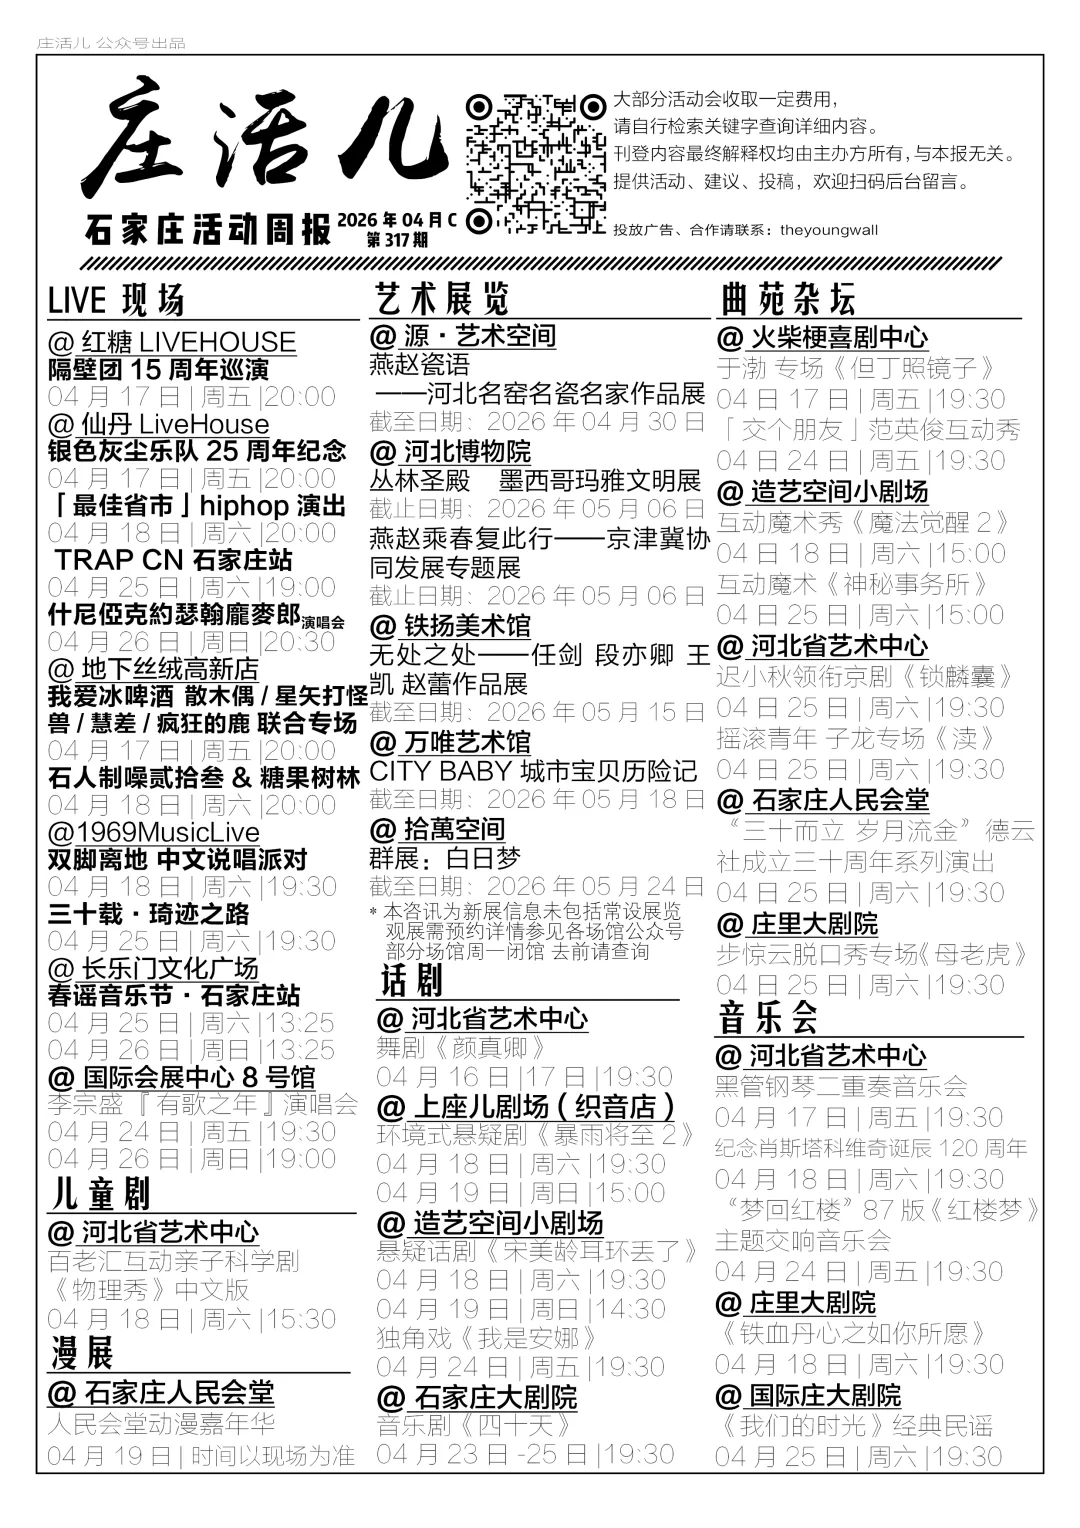 庄活儿 公众号出品
庄活儿
石家庄活动周报
2026 年 04 月 C
第 317 期
大部分活动会收取一定费用，
请自行检索关键字查询详细内容。
刊登内容最终解释权均由主办方所有，与本报无关。
提供活动、建议、投稿，欢迎扫码后台留言。
投放广告、合作请联系：theyoungwall
LIVE 现场
@ 红糖 LIVEHOUSE
隔壁团 15 周年巡演
04 月 17 日 | 周五 |20:00
@ 仙丹 LiveHouse
银色灰尘乐队 25 周年纪念
04 月 17 日 | 周五 |20:00
「最佳省市」hiphop 演出
04 月 18 日 | 周六 |20:00
TRAP CN 石家庄站
04 月 25 日 | 周六 |19:00
什尼俹克約瑟翰龐麥郎演唱会
04 月 26 日 | 周日 |20:30
@ 地下丝绒高新店
我爱冰啤酒 散木偶 / 星矢打怪
兽 / 慧差 / 疯狂的鹿 联合专场
04 月 17 日 | 周五 |20:00
石人制噪贰拾叁 & 糖果树林
04 月 18 日 | 周六 |20:00
@1969MusicLive
双脚离地 中文说唱派对
04 月 18 日 | 周六 |19:30
三十载·琦迹之路
04 月 25 日 | 周六 |19:30
@ 长乐门文化广场
春谣音乐节·石家庄站
04 月 25 日 | 周六 |13:25
04 月 26 日 | 周日 |13:25
@ 国际会展中心 8 号馆
李宗盛『有歌之年』演唱会
04 月 24 日 | 周五 |19:30
04 月 26 日 | 周日 |19:00
儿童剧
@ 河北省艺术中心
百老汇互动亲子科学剧
《物理秀》中文版
04 月 18 日 | 周六 |15:30
漫展
@ 石家庄人民会堂
人民会堂动漫嘉年华
04 月 19 日 | 时间以现场为准
艺术展览
@ 源·艺术空间
燕赵瓷语
——河北名窑名瓷名家作品展
截至日期：2026 年 04 月 30 日
@ 河北博物院
丛林圣殿　墨西哥玛雅文明展
截止日期：2026 年 05 月 06 日
燕赵乘春复此行——京津冀协
同发展专题展
截止日期：2026 年 05 月 06 日
@ 铁扬美术馆
无处之处——任剑 段亦卿 王
凯 赵蕾作品展
截至日期：2026 年 05 月 15 日
@ 万唯艺术馆
CITY BABY 城市宝贝历险记
截至日期：2026 年 05 月 18 日
@ 拾萬空间
群展：白日梦
截至日期：2026 年 05 月 24 日
* 本咨讯为新展信息未包括常设展览
观展需预约详情参见各场馆公众号
部分场馆周一闭馆 去前请查询
话剧
@ 河北省艺术中心
舞剧《颜真卿》
04 月 16 日 |17 日 |19:30
@ 上座儿剧场（织音店）
环境式悬疑剧《暴雨将至 2》
04 月 18 日 | 周六 |19:30
04 月 19 日 | 周日 |15:00
@ 造艺空间小剧场
悬疑话剧《宋美龄耳环丢了》
04 月 18 日 | 周六 |19:30
04 月 19 日 | 周日 |14:30
独角戏《我是安娜》
04 月 24 日 | 周五 |19:30
@ 石家庄大剧院
音乐剧《四十天》
04 月 23 日 -25 日 |19:30
曲苑杂坛
@ 火柴梗喜剧中心
于渤 专场《但丁照镜子》
04 日 17 日 | 周五 |19:30
「交个朋友」范英俊互动秀
04 日 24 日 | 周五 |19:30
@ 造艺空间小剧场
互动魔术秀《魔法觉醒 2》
04 日 18 日 | 周六 |15:00
互动魔术《神秘事务所》
04 日 25 日 | 周六 |15:00
@ 河北省艺术中心
迟小秋领衔京剧《锁麟囊》
04 日 25 日 | 周六 |19:30
摇滚青年 子龙专场《渎》
04 日 25 日 | 周六 |19:30
@ 石家庄人民会堂
“三十而立 岁月流金”德云
社成立三十周年系列演出
04 日 25 日 | 周六 |19:30
@ 庄里大剧院
步惊云脱口秀专场《母老虎》
04 日 25 日 | 周六 |19:30
音乐会
@ 河北省艺术中心
黑管钢琴二重奏音乐会
04 月 17 日 | 周五 |19:30
纪念肖斯塔科维奇诞辰 120 周年
04 月 18 日 | 周六 |19:30
“梦回红楼”87 版《红楼梦》
主题交响音乐会
04 月 24 日 | 周五 |19:30
@ 庄里大剧院
《铁血丹心之如你所愿》
04 月 18 日 | 周六 |19:30
@ 国际庄大剧院
《我们的时光》经典民谣
04 月 25 日 | 周六 |19:30